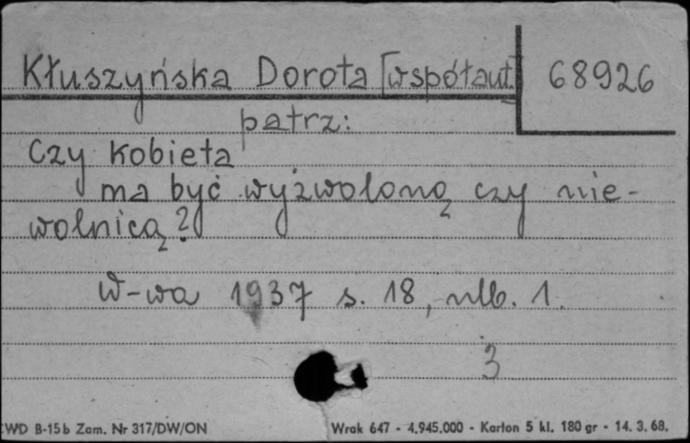 Kłuszyńska Dorota [współaut.] 68926
patrz:
Czy kobieta
ma być wyzwoloną czy nie-
wolnicą?
W-wa 1937 s. 18, nlb. 1.
3
WD B-15b Zam. Nr 317/DW/ON Wrak 647 - 4.945.000 - Karton 5 kl. 180 gr - 14. 3. 68.